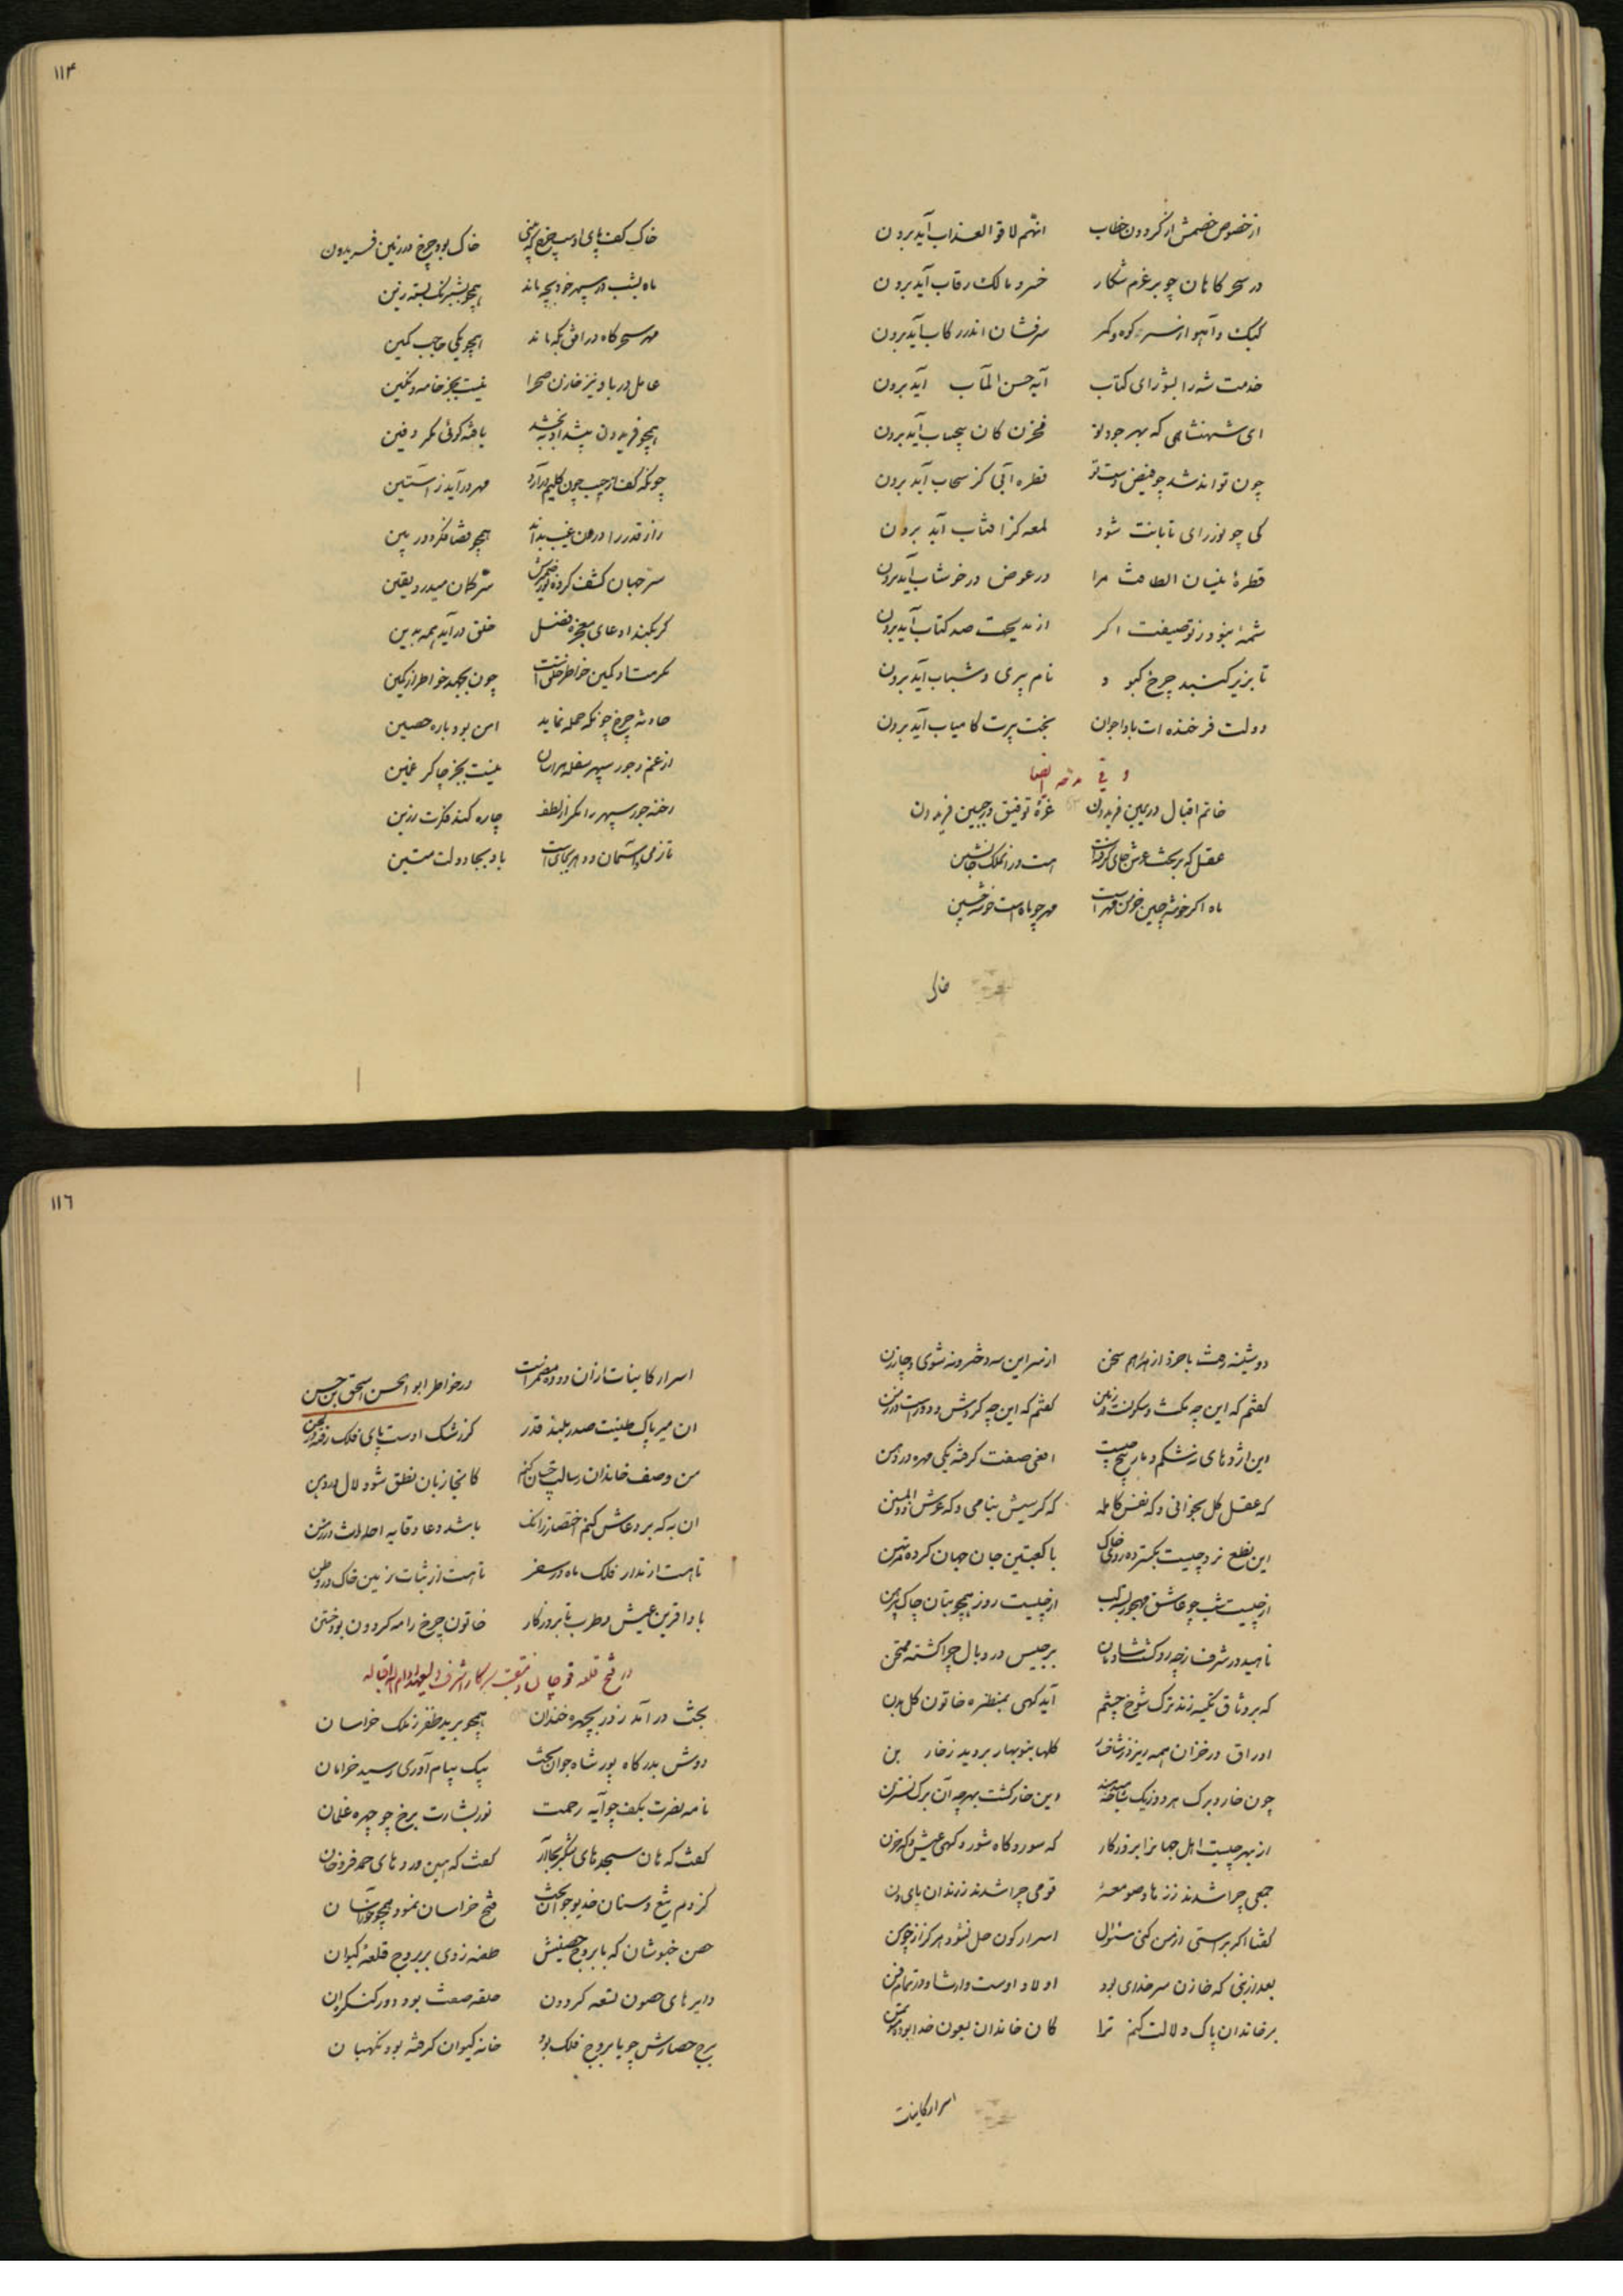 از خصوص خصمش ار گردون خطاب انهم لاقوا العذاب آید برون
در سحر کاهان چو بر عزم شکار خسرو مالک رقاب آید برون
کبک و آهو از سر کوه و کمر سرفشان اندر رکاب آید برون
خدمت شه را بشورای کتاب آیه حسن المآب آید برون
ای شهنشاهی که بهر جود تو مخزن کان بیحساب آید برون
چون تواند شد چو فیض دست تو قطره آبی کز سحاب آید برون
کی چو نور رای تابانت شود لمعه کز افتاب آید برون
قطرهٔ نیسان الطافت مرا در عوض در خوشاب آید برون
شمهٔ بنود ز توصیفت اکر از مدیحت صد کتاب آید برون
تا بزیر کنبد چرخ کبود نام پیری و شباب آید برون
دولت فرخنده ات بادا جوان بخت پیرت کامیاب آید برون
و فی مدحه ایضا
خاتم اقبال در یمین فریدون غرهٔ توفیق در جبین فریدون
عقل که بر تخت عرش جای گرفته است هست در ان ملک جانشین
ماه اکر خوشه چین خرمن مهر است مهر چو ماه است خوشه چین
خاک
۱۱۴
خاک کف پای اوست چرخ که بینی خاک بود چرخ در زمین فریدون
ماه بشب در سپهر خود بچه ماند همچو بشیرنک بسته زین
مهر سحر کاه در افق بکه ماند همچو یکی حاجب کمین
عامل دریا و نیز خازن صحرا نیست بجز خامه و نکین
همچو فریدون پیشدادیه بخشد یافته کوئی مکر دفین
چونکه کف از جیب چون کلیم درآرد مهر درآید ز آستین
راز قدر را درون غیب بداند همچو قضا فکر دوربین
سر جهان کشف کرده نور ضمیرش ستر کمان میدرد یقین
کر بکند ادعای معجزه فضل خلق درآید همه بدین
مکرمت او کمین خواطر خلق است چون بجهد خواطر از کمین
حادثه چرخ چونکه حمله نماید امن بود باره حصین
از غم و جور سپهر سفله هراسان نیست بجز چاکر غمین
رخنه جور سپهر را مکر از لطف چاره کند فکرت رزین
تا زمی و آسمان دو هر بجای است باد بجا دولت متین
دوشینه رفت با خرد از هر درم سخن از سر این سه دختر و نه شوی و چار زن
گفتم که این چه مکث و سکونست در زمین گفتم که این چه کردش و دور است در زمن
این اژدهای نه شکم و مار پیچ چیست افعی صفت کرفته یکی مهره در دهن
که عقل کل بخوانی و که نفس کامله که کرسیش بنامی و که عرش ذوالمنن
این نطع نرد چیست بکسترده روی خاک با کعبتین جان جهان کرده مرتهن
از چیست شب چو عاشق مهجور بسته لب از چیست روز همچو بتان چاک پیرهن
ناهید در شرف ز چه رو کشت شادمان برجیس در وبال چرا کشته ممتحن
که بر وثاق تکیه زند ترک شوخ چشم آید کهی بمنظره خاتون کل بدن
اوراق در خزان همه ریزد ز شاخها کلها بنوبهار بروید ز خار بن
چون خار و برک هر دو ز یک شاخه میدمند این خار کشت بهر چه آن برک نسترن
از بهر چیست اهل جهانرا بروزکار که سور و کاه شور و کهی عیش و که حزن
جمعی چرا شدند ز زهاد صومعهٔ قومی چرا شدند ز رندان پای دن
کفتا اکر براستی از من کنی سئوال اسرار کون حل نشود هرکز از چو من
بعد از نبی که خازن سر خدای بود اولاد اوست وارث او در تمام فن
بر خاندان پاک دلالت کنم ترا کان خاندان بعون خدا بوده مؤتمن
اسرار کاینات
۱۱٦
اسرار کاینات ازان دوده مضمر است در خواطر ابوالحسن اسحق بن حسن
ان میر پاک طینت صدر بلند قدر کز رشک اوست پای فلک رفته در لجن
من وصف خاندان رسالت چسان کنم کانجا زبان نطق شود لال در دهن
ان به که بر دعاش کنم اختصار زانک باشد دعا وقایه احداث در زمن
تا هست از مدار فلک ماه در سفر تا هست از ثبات زمین خاک در وطن
بادا قرین عیش و طرب تا بروزکار خاتون چرخ را مه کردون بود ختن
در فتح قلعه قوچان و منقبت سرکار اشرف ولیعهد ادام الله اقباله
بخت درآمد ز در بچهره خندان همچو برید ظفر ز ملک خراسان
دوش بدرکاه پور شاه جوان بخت پیک پیام آوری رسید خرامان
نامه نصرت بکف چو آیه رحمت نور بشارت برخ چو چهره غلمان
کفت که هان سجده های شکر بجا آر کفت که هین درودهای حمد فرو خوان
کز دم تیغ و سنان خدیو جوان بخت فتح خراسان نمود همچو خور آسان
حصن خبوشان که با بروج حصینش طعنه زدی بر بروج قلعهٔ کیوان
دایرهای حصون تسعه کردون حلقه صفت بود دور کنکر ان
برج حصارش چو با بروج فلک بود خانه کیوان کرفته بود نکهبان